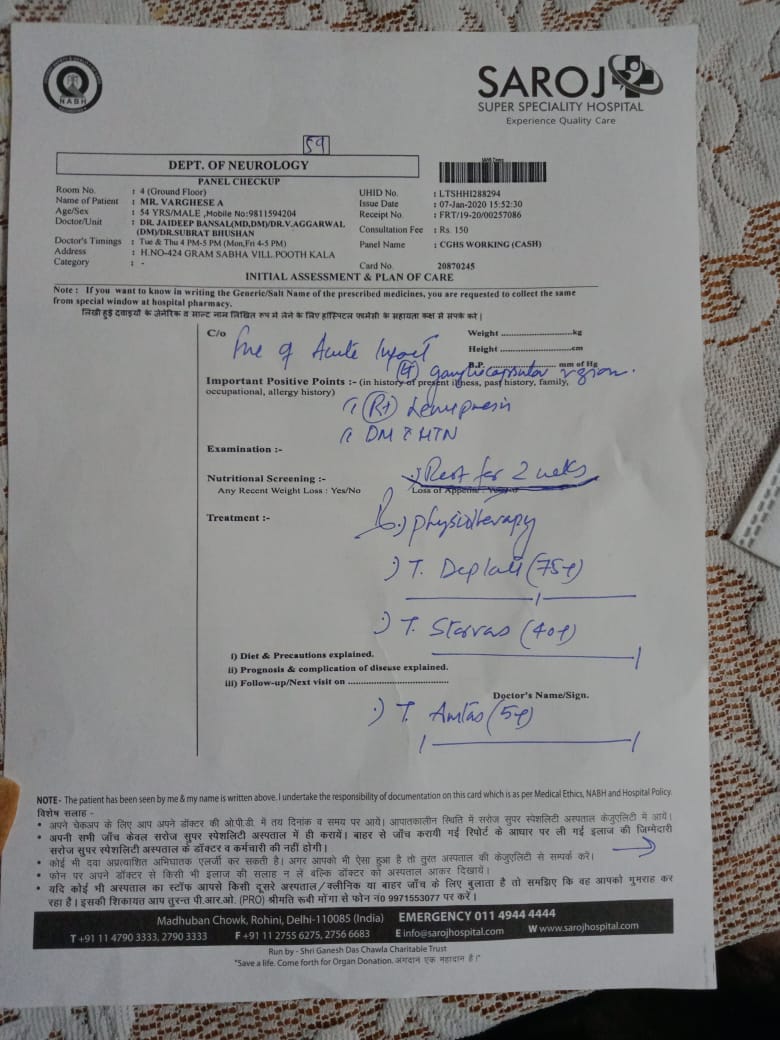 NABH
SAROJ
SUPER SPECIALITY HOSPITAL
Experience Quality Care
59
DEPT. OF NEUROLOGY
PANEL CHECKUP
Room No. : 4 (Ground Floor)
Name of Patient : MR. VARGHESE A
Age/Sex : 54 YRS/MALE ,Mobile No:9811594204
Doctor/Unit : DR. JAIDEEP BANSAL(MD,DM)/DR.V.AGGARWAL
(DM)/DR.SUBRAT BHUSHAN
Doctor's Timings : Tue & Thu 4 PM-5 PM (Mon,Fri 4-5 PM)
Address : H.NO-424 GRAM SABHA VILL.POOTH KALA
Category : -
UHID No. : LTSHHI288294
Issue Date : 07-Jan-2020 15:52:30
Receipt No. : FRT/19-20/00257086
Consultation Fee : Rs. 150
Panel Name : CGHS WORKING (CASH)
Card No. 20870245
INITIAL ASSESSMENT & PLAN OF CARE
Note : If you want to know in writing the Generic/Salt Name of the prescribed medicines, you are requested to collect the same
from special window at hospital pharmacy.
लिखी हुई दवाइयों के जेनेरिक व साल्ट नाम लिखित रूप में लेने के लिए हॉस्पिटल फार्मेसी के सहायता कक्ष से संपर्क करें।
C/o
Weight ........................kg
Height ........................cm
B.P. ........................ mm of Hg
of Acute
(Lt) gangliocapsular region.
Important Positive Points :- (in history of present illness, past history, family,
occupational, allergy history)
(Rt)
DM HTN
Examination :-
Nutritional Screening :-
Rest for 2 weeks
Any Recent Weight Loss : Yes/No
Loss of Appetite : Yes/No
Treatment :-
Physiotherapy
T. Deplatt (75)
T. Starvas (40)
i) Diet & Precautions explained.
ii) Prognosis & complication of disease explained.
iii) Follow-up/Next visit on ................................
Doctor's Name/Sign.
T. Amtas (5)
NOTE- The patient has been seen by me & my name is written above. I undertake the responsibility of documentation on this card which is as per Medical Ethics, NABH and Hospital Policy.
विशेष सलाह -
• अपने चेकअप के लिए आप अपने डॉक्टर की ओ.पी.डी. में तय दिनांक व समय पर आयें। आपातकालीन स्थिति में सरोज सुपर स्पेशलिटी अस्पताल केजुएलिटी में आयें।
• अपनी सभी जाँच केवल सरोज सुपर स्पेशलिटी अस्पताल में ही करायें। बाहर से जाँच करायी गई रिपोर्ट के आधार पर ली गई इलाज की जिम्मेदारी
सरोज सुपर स्पेशलिटी अस्पताल के डॉक्टर व कर्मचारी की नहीं होगी।
• कोई भी दवा अप्रत्याशित अभिघातक एलर्जी कर सकती है। अगर आपको भी ऐसा हुआ है तो तुरत अस्पताल की केजुएलिटी से सम्पर्क करें।
• फोन पर अपने डॉक्टर से किसी भी इलाज की सलाह न लें बल्कि डॉक्टर को अस्पताल आकर दिखायें।
• यदि कोई भी अस्पताल का स्टॉफ आपसे किसी दूसरे अस्पताल / क्लीनिक या बाहर जाँच के लिए बुलाता है तो समझिए कि वह आपको गुमराह कर
रहा है। इसकी शिकायत आप तुरन्त पी.आर.ओ. (PRO) श्रीमति रूबी मोंगा से फोन नं0 9971553077 पर करें।
Madhuban Chowk, Rohini, Delhi-110085 (India) EMERGENCY 011 4944 4444
T +91 11 4790 3333, 2790 3333 F +91 11 2755 6275, 2756 6683 E info@sarojhospital.com W www.sarojhospital.com
Run by - Shri Ganesh Das Chawla Charitable Trust
"Save a life. Come forth for Organ Donation. अंगदान एक महादान है।"